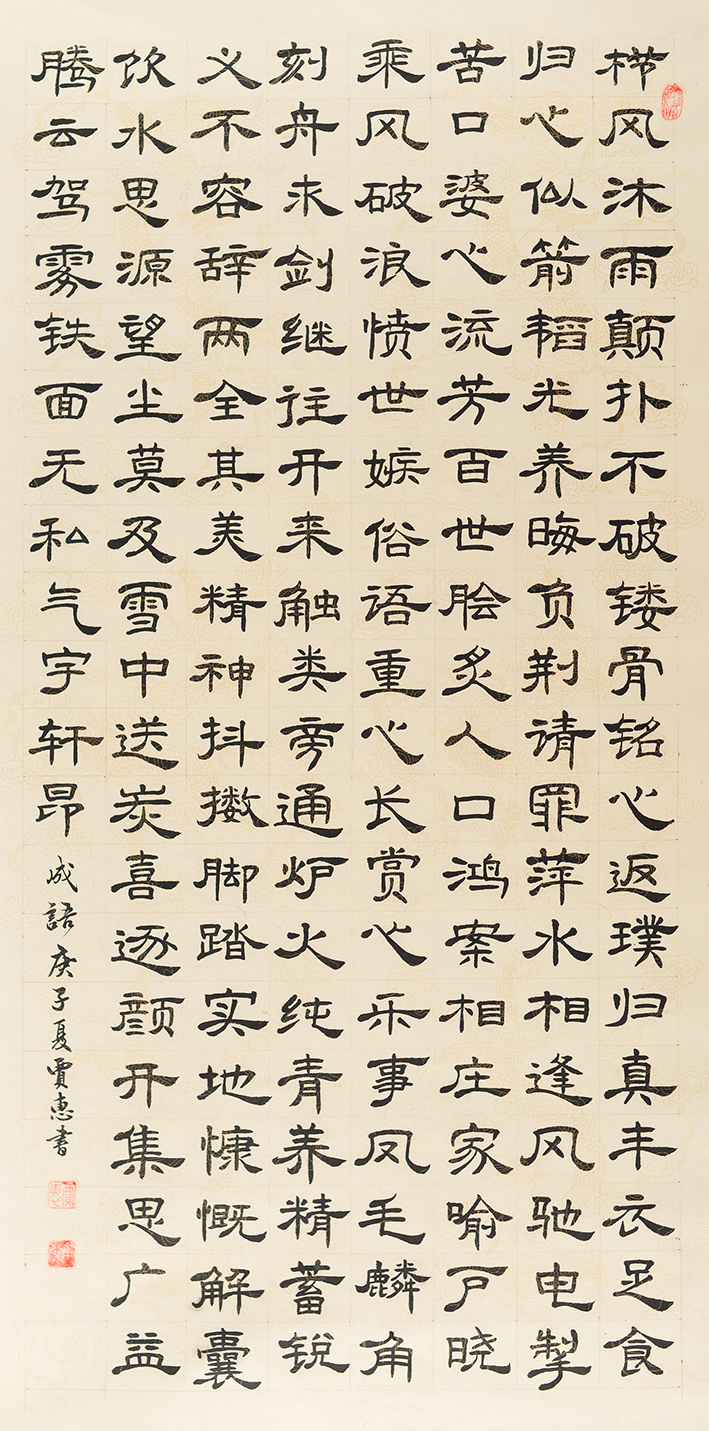 栉风沐雨颠扑不破镂骨铭心返璞归真丰衣足食
归心似箭韬光养晦负荆请罪萍水相逢风驰电掣
苦口婆心流芳百世脍炙人口鸿案相庄家喻户晓
乘风破浪愤世嫉俗语重心长赏心乐事凤毛麟角
刻舟求剑继往开来触类旁通炉火纯青养精蓄锐
义不容辞两全其美精神抖擞脚踏实地慷慨解囊
饮水思源望尘莫及雪中送炭喜逐颜开集思广益
腾云驾雾铁面无私气宇轩昂 成語 庚子夏賈惠書